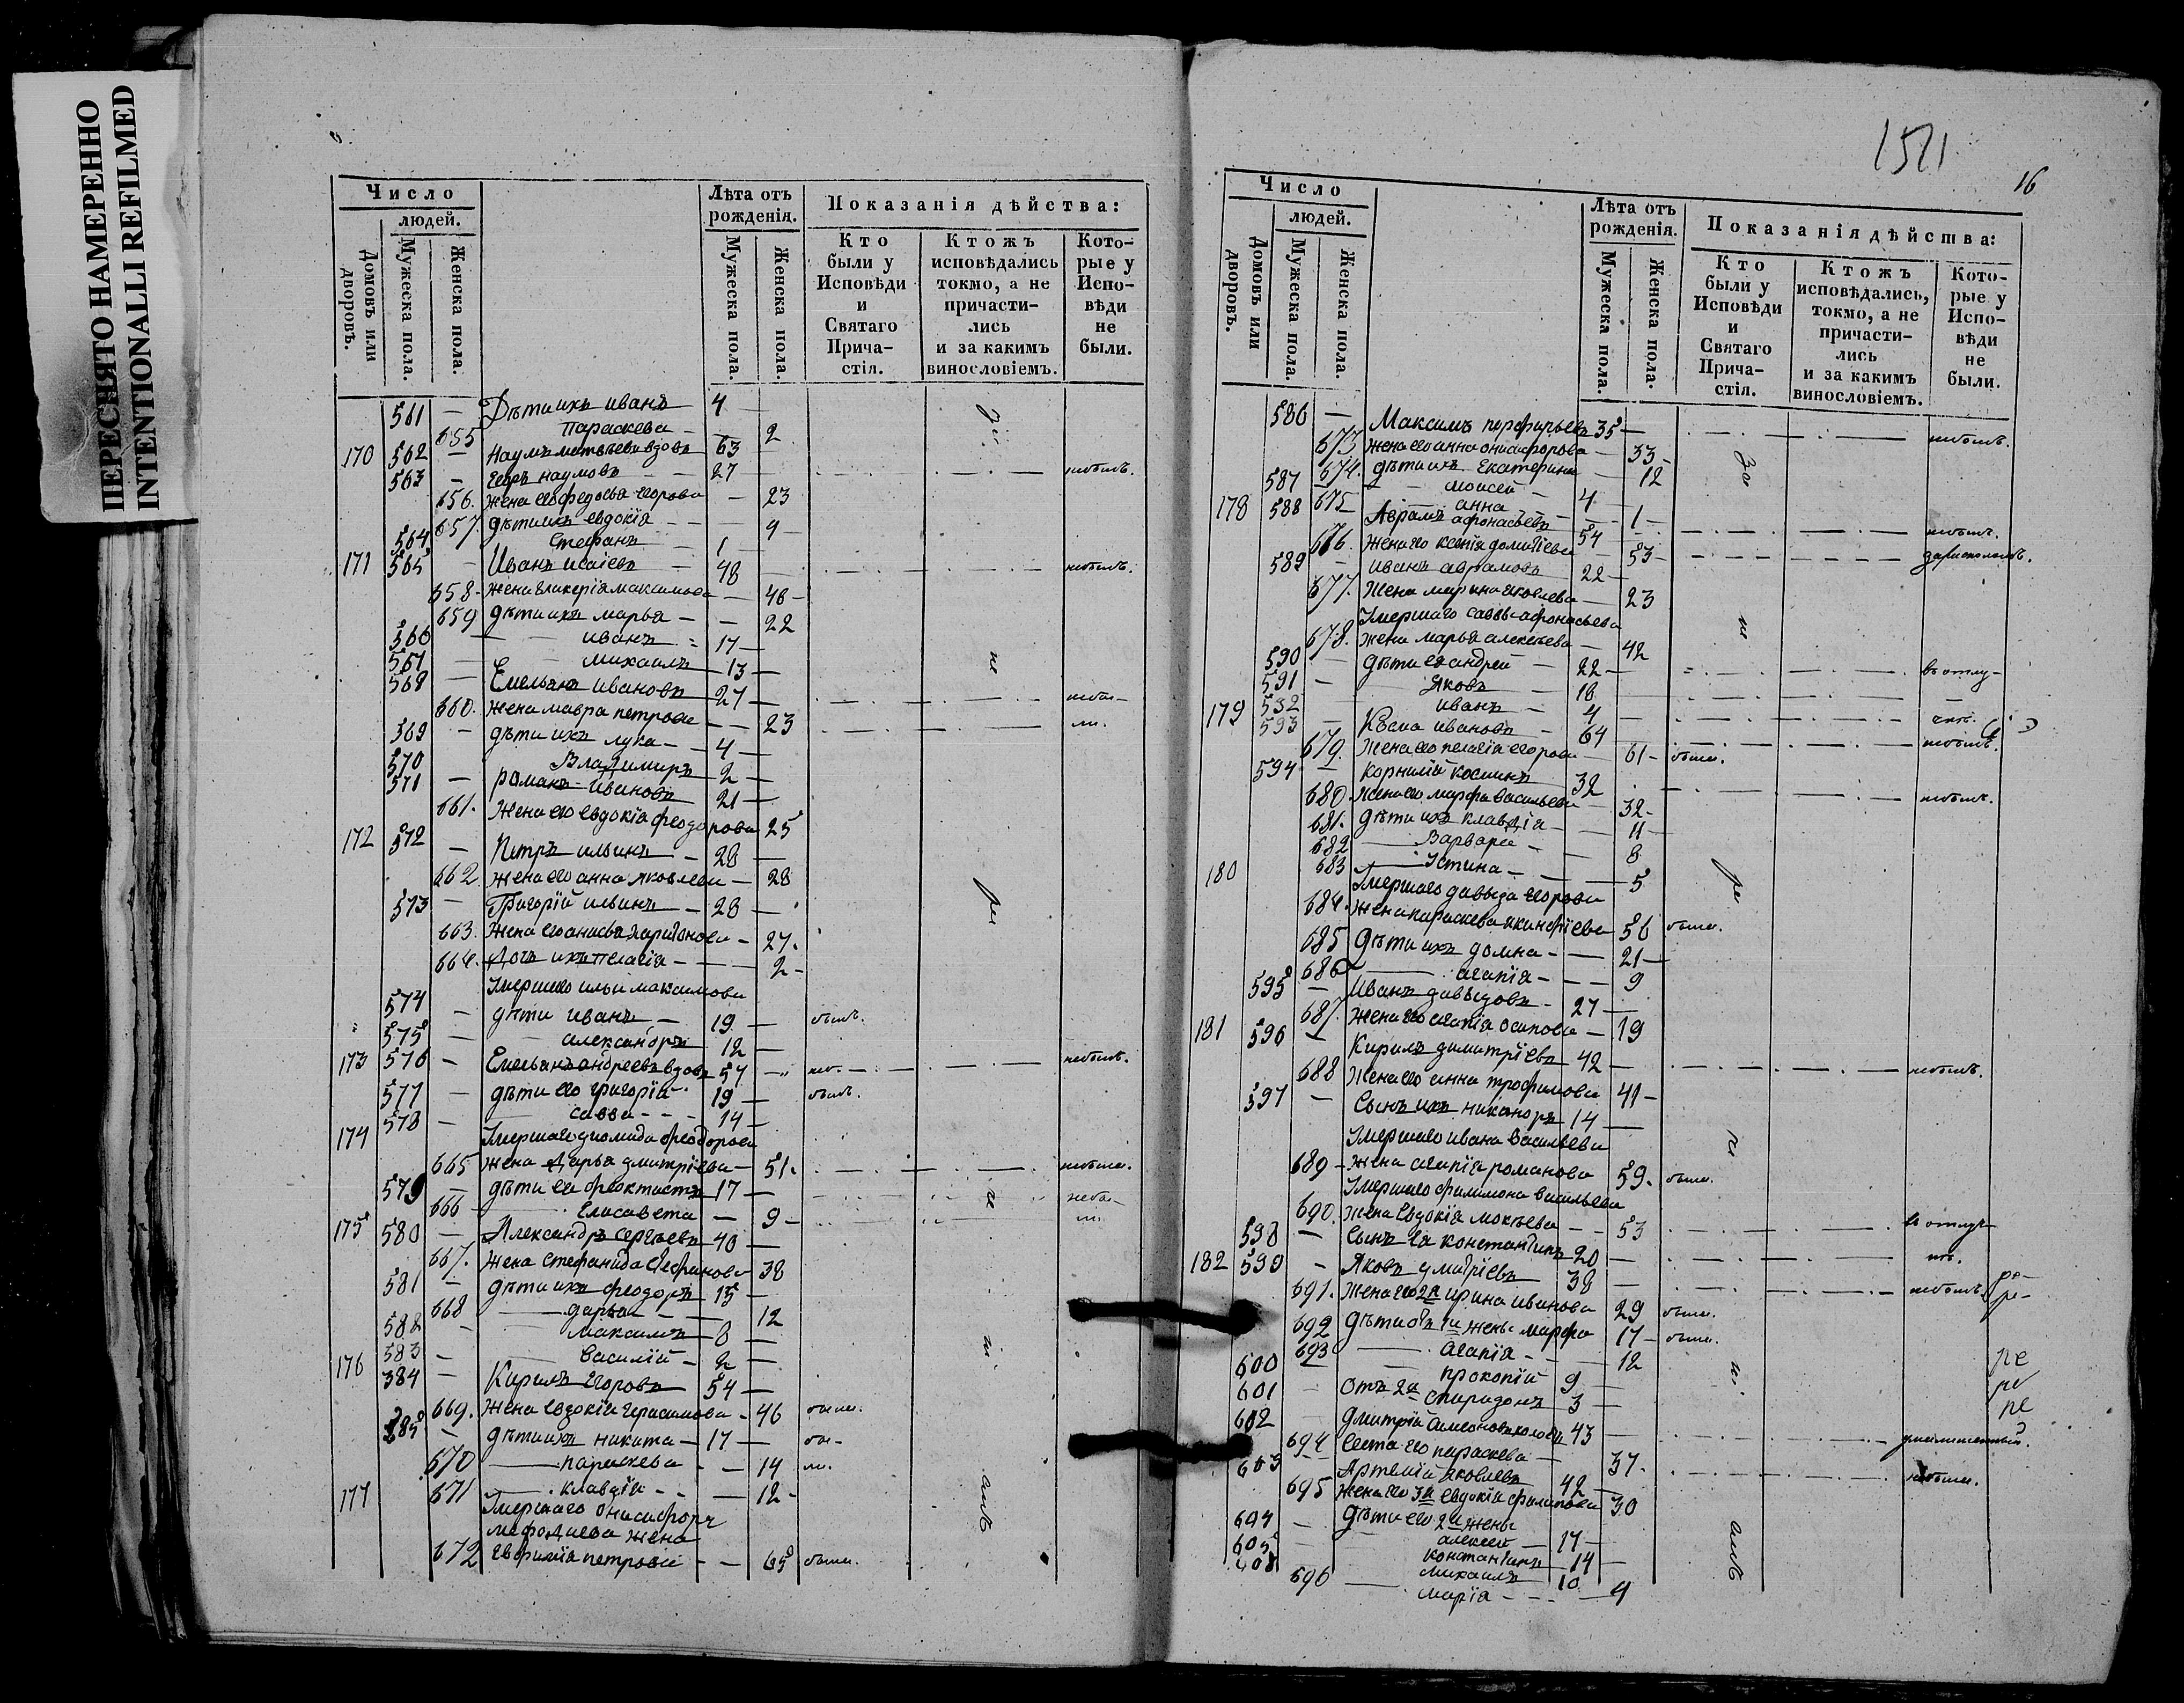 ПЕРЕСНЯТО НАМЕРЕННО
INTENTIONALLI REFILMED
Число
людей.
Домовъ или дворовъ.
Мужеска пола.
Женска пола.
Лѣта отъ рожденія.
Мужеска пола.
Женска пола.
Показанія дѣйства:
Кто были у Исповѣди и Святаго Прича-стія.
Ктожъ исповѣдались токмо, а не причасти-лись и за какимъ винословіемъ.
Кото-рые у Испо-вѣди не были.
561 — Дѣти ихъ иванъ 4 —
655 Параскева — 2
170 562 — Наумъ матвѣевъ вдовъ 63
563 — Егоръ наумовъ — 27 небылъ.
656. жена его федосья егорова — 23
657. дѣти ихъ евдокія — — 4 —
564 Стефанъ — 1 —
171 565 — Иванъ исаіевъ — 48 небылъ.
658 — жена гликерія максимова — 48 —
659 дѣти ихъ марья — — 22
566 — иванъ — 17 —
567 — михаилъ — 13 —
568 — Емельянъ ивановъ 27 — небы—
660. жена мавра петрова — — 23 ли.
569 — дѣти ихъ лука — 4 —
570 Владимиръ 2 —
571 — романъ ивановъ 21 —
661. Жена его евдокія феодорова 25
172 572 — Петръ ильинъ — 28 —
662. жена его анна яковлева — 28
573 — Григорій ильинъ — 28 —
663. Жена его анисья харитонова — 27.
664. дочь ихъ пелагія — — 2 —
Умершаго ильи максимова
574 — дѣти иванъ — 19 — былъ.
575 — александръ 12 —
173 576 — Емельянъ андреевъ вдовъ 57 небылъ.
577 — дѣти его григорій 19 — былъ.
578 — савва — — 14 —
174 Умершаго диомида феодорова
665 жена дарья дмитріева — 51. небыла.
579 — дѣти ея феоктистъ 17 — небы—
666 — Елисавета — 9 — ли.
175 580 — Александръ сергѣевъ 40 —
667. жена стефанида стефанова 38
581 — дѣти ихъ феодоръ 15 —
668 — дарья — 12
582 — максимъ 8 —
583 — василій — 2 —
176 584 — Кирилъ егоровъ 54 —
669. жена евдокія герасимова — 46 была.
585 — дѣти ихъ никита — 17 — бы—
670 — параскева — — 14 ли.
177 671 — клавдія — — — 12 —
Умершаго онисифора
мефодиева жена
672 Евфимія петрова — — 65 была.
за
не
ре
че
ні
емъ
1511
16
Число
людей.
Домовъ или дворовъ.
Мужеска пола.
Женска пола.
Лѣта отъ рожденія.
Мужеска пола.
Женска пола.
Показанія дѣйства:
Кто были у Исповѣди и Святаго Прича-стія.
Ктожъ исповѣдались, токмо, а не причасти-лись и за какимъ винословіемъ.
Кото-рые у Испо-вѣди не были.
586 — Максимъ порфирьевъ 35 — небылъ.
673 жена его анна онисифорова — 33 —
674. дѣти ихъ екатерина — 12
587 — моисей — 4
675 анна — — 1 —
178 588 Аврамъ афонасьевъ 54 небылъ.
676. жена его ксенія — 53 —
589 — иванъ аврамовъ 22 —
677. Жена марина яковлева — 23
Умершаго саввы афонасьева
678. жена марья алексѣева — 42
590 — дѣти ея андрей — 22 — въ отлу—
591 — яковъ — 18
592 — иванъ — 4 чкѣ.
179 593 — Косма ивановъ — 64 небылъ.
679. Жена его пелагія егорова — 61 — была.
594 — корнилій косминъ 32 небылъ.
680. жена его марфа васильева — 32 —
681. дѣти ихъ клавдія — — 11 —
682 — Варвара — — 8
683 — Устина — — 5
180 Умершаго давыда егорова
684. жена параскева 56 была.
685 дѣти ихъ домна — — 21 —
686 — агапія — — 9
595 — Иванъ давыдовъ — 27 —
687. Жена его агапія осипова — 19
181 596 — Кирилъ димитріевъ 42 — небылъ.
688 жена его анна трофимова 41 —
597 — Сынъ ихъ никаноръ 14 —
Умершаго ивана васильева
689 — жена агапія романова 59. была.
Умершаго филимона васильева
690. жена евдокія мокѣева — 53
598 — Сынъ ея константинъ 20 — въ отлуч—
182 599 — Яковъ дмитріевъ 38 — небылъ.
691. жена его 2я ирина иванова 29 была.
692 дѣти отъ 1й жены марфа 17 — была.
693 — агапія — — 12
600 — прокопій 9 —
601 — Отъ 2й спиридонъ 3 —
602 Дмитрій 43
694 Сестра его параскева — 37.
603 Артемій яковлевъ 42 — небыли.
695 жена его 3я евдокія филипова 30
604 — дѣти его 2й жены
алексей — 17 —
605 константинъ — 14 —
606 михаилъ 10
696 — марія — — — 4
за
не
ре
че
ні
емъ